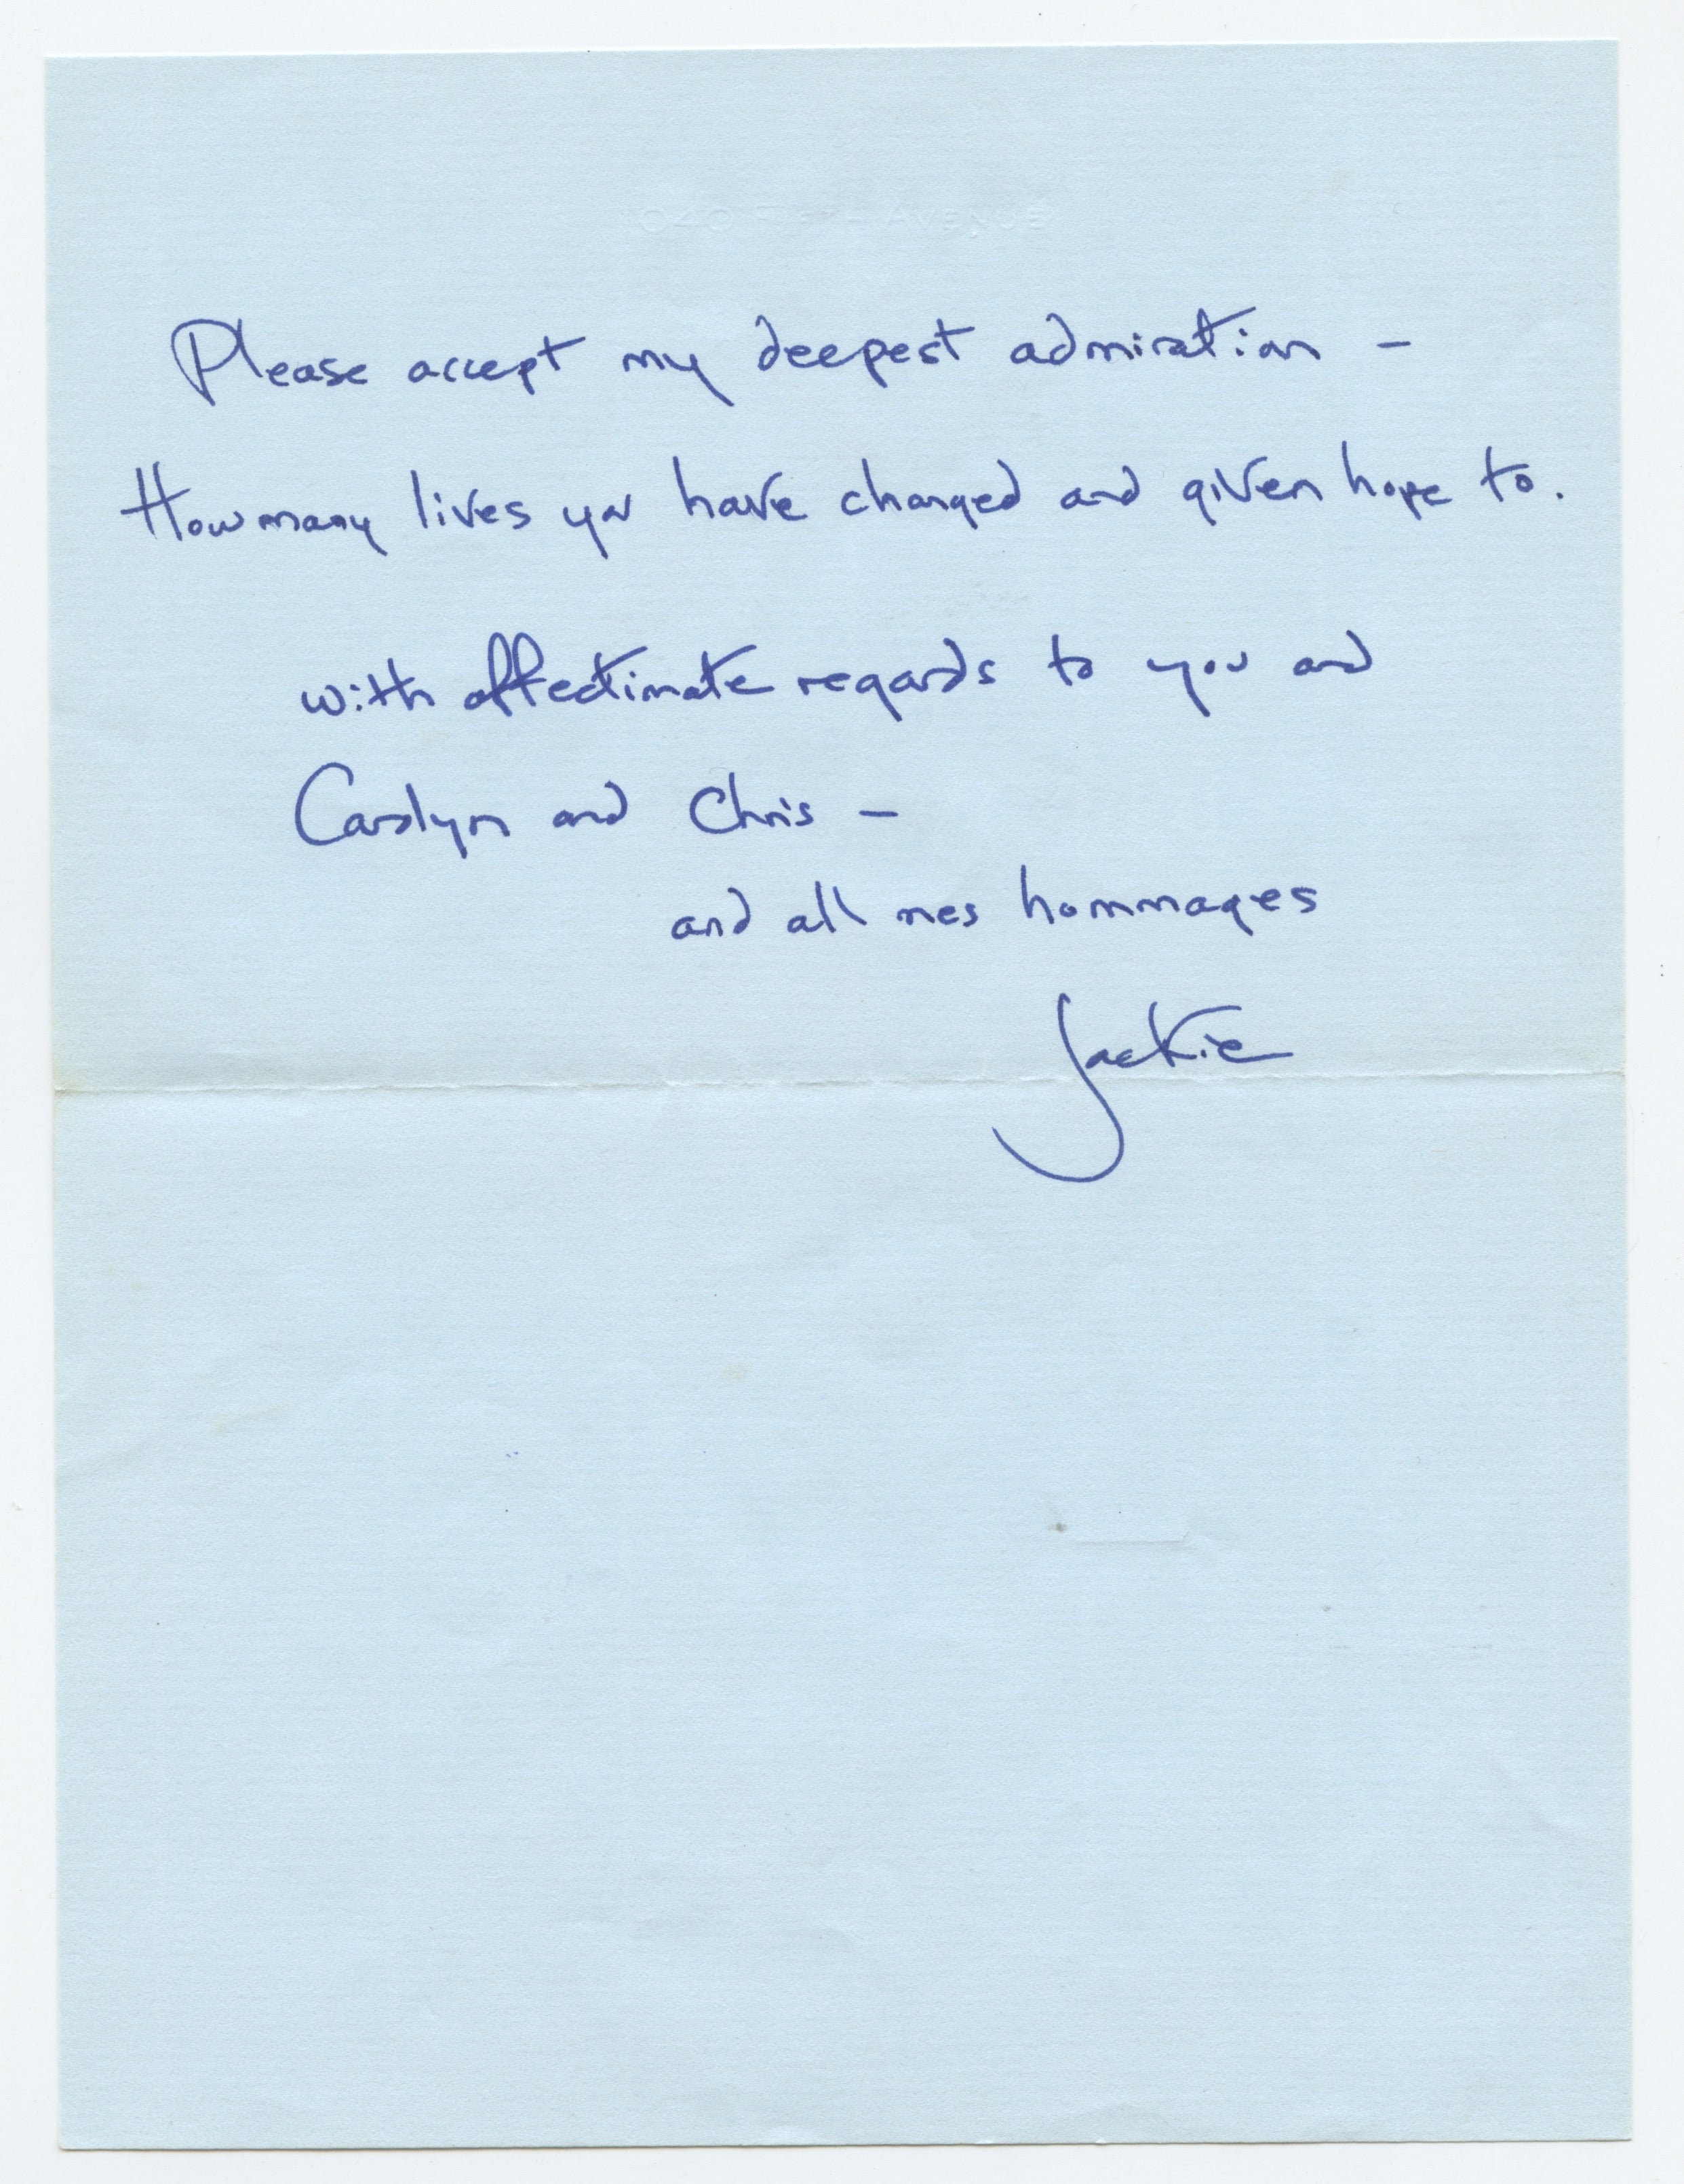 1040 Fifth Avenue
Please accept my deepest admiration –
How many lives you have changed and given hope to.
with affectionate regards to you and
Carolyn and Chris –
and all mes hommages
Jackie